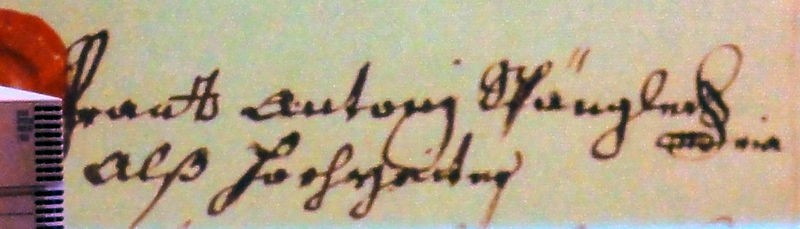 Frantz Antonj Spängler
Alß Hochzeiter